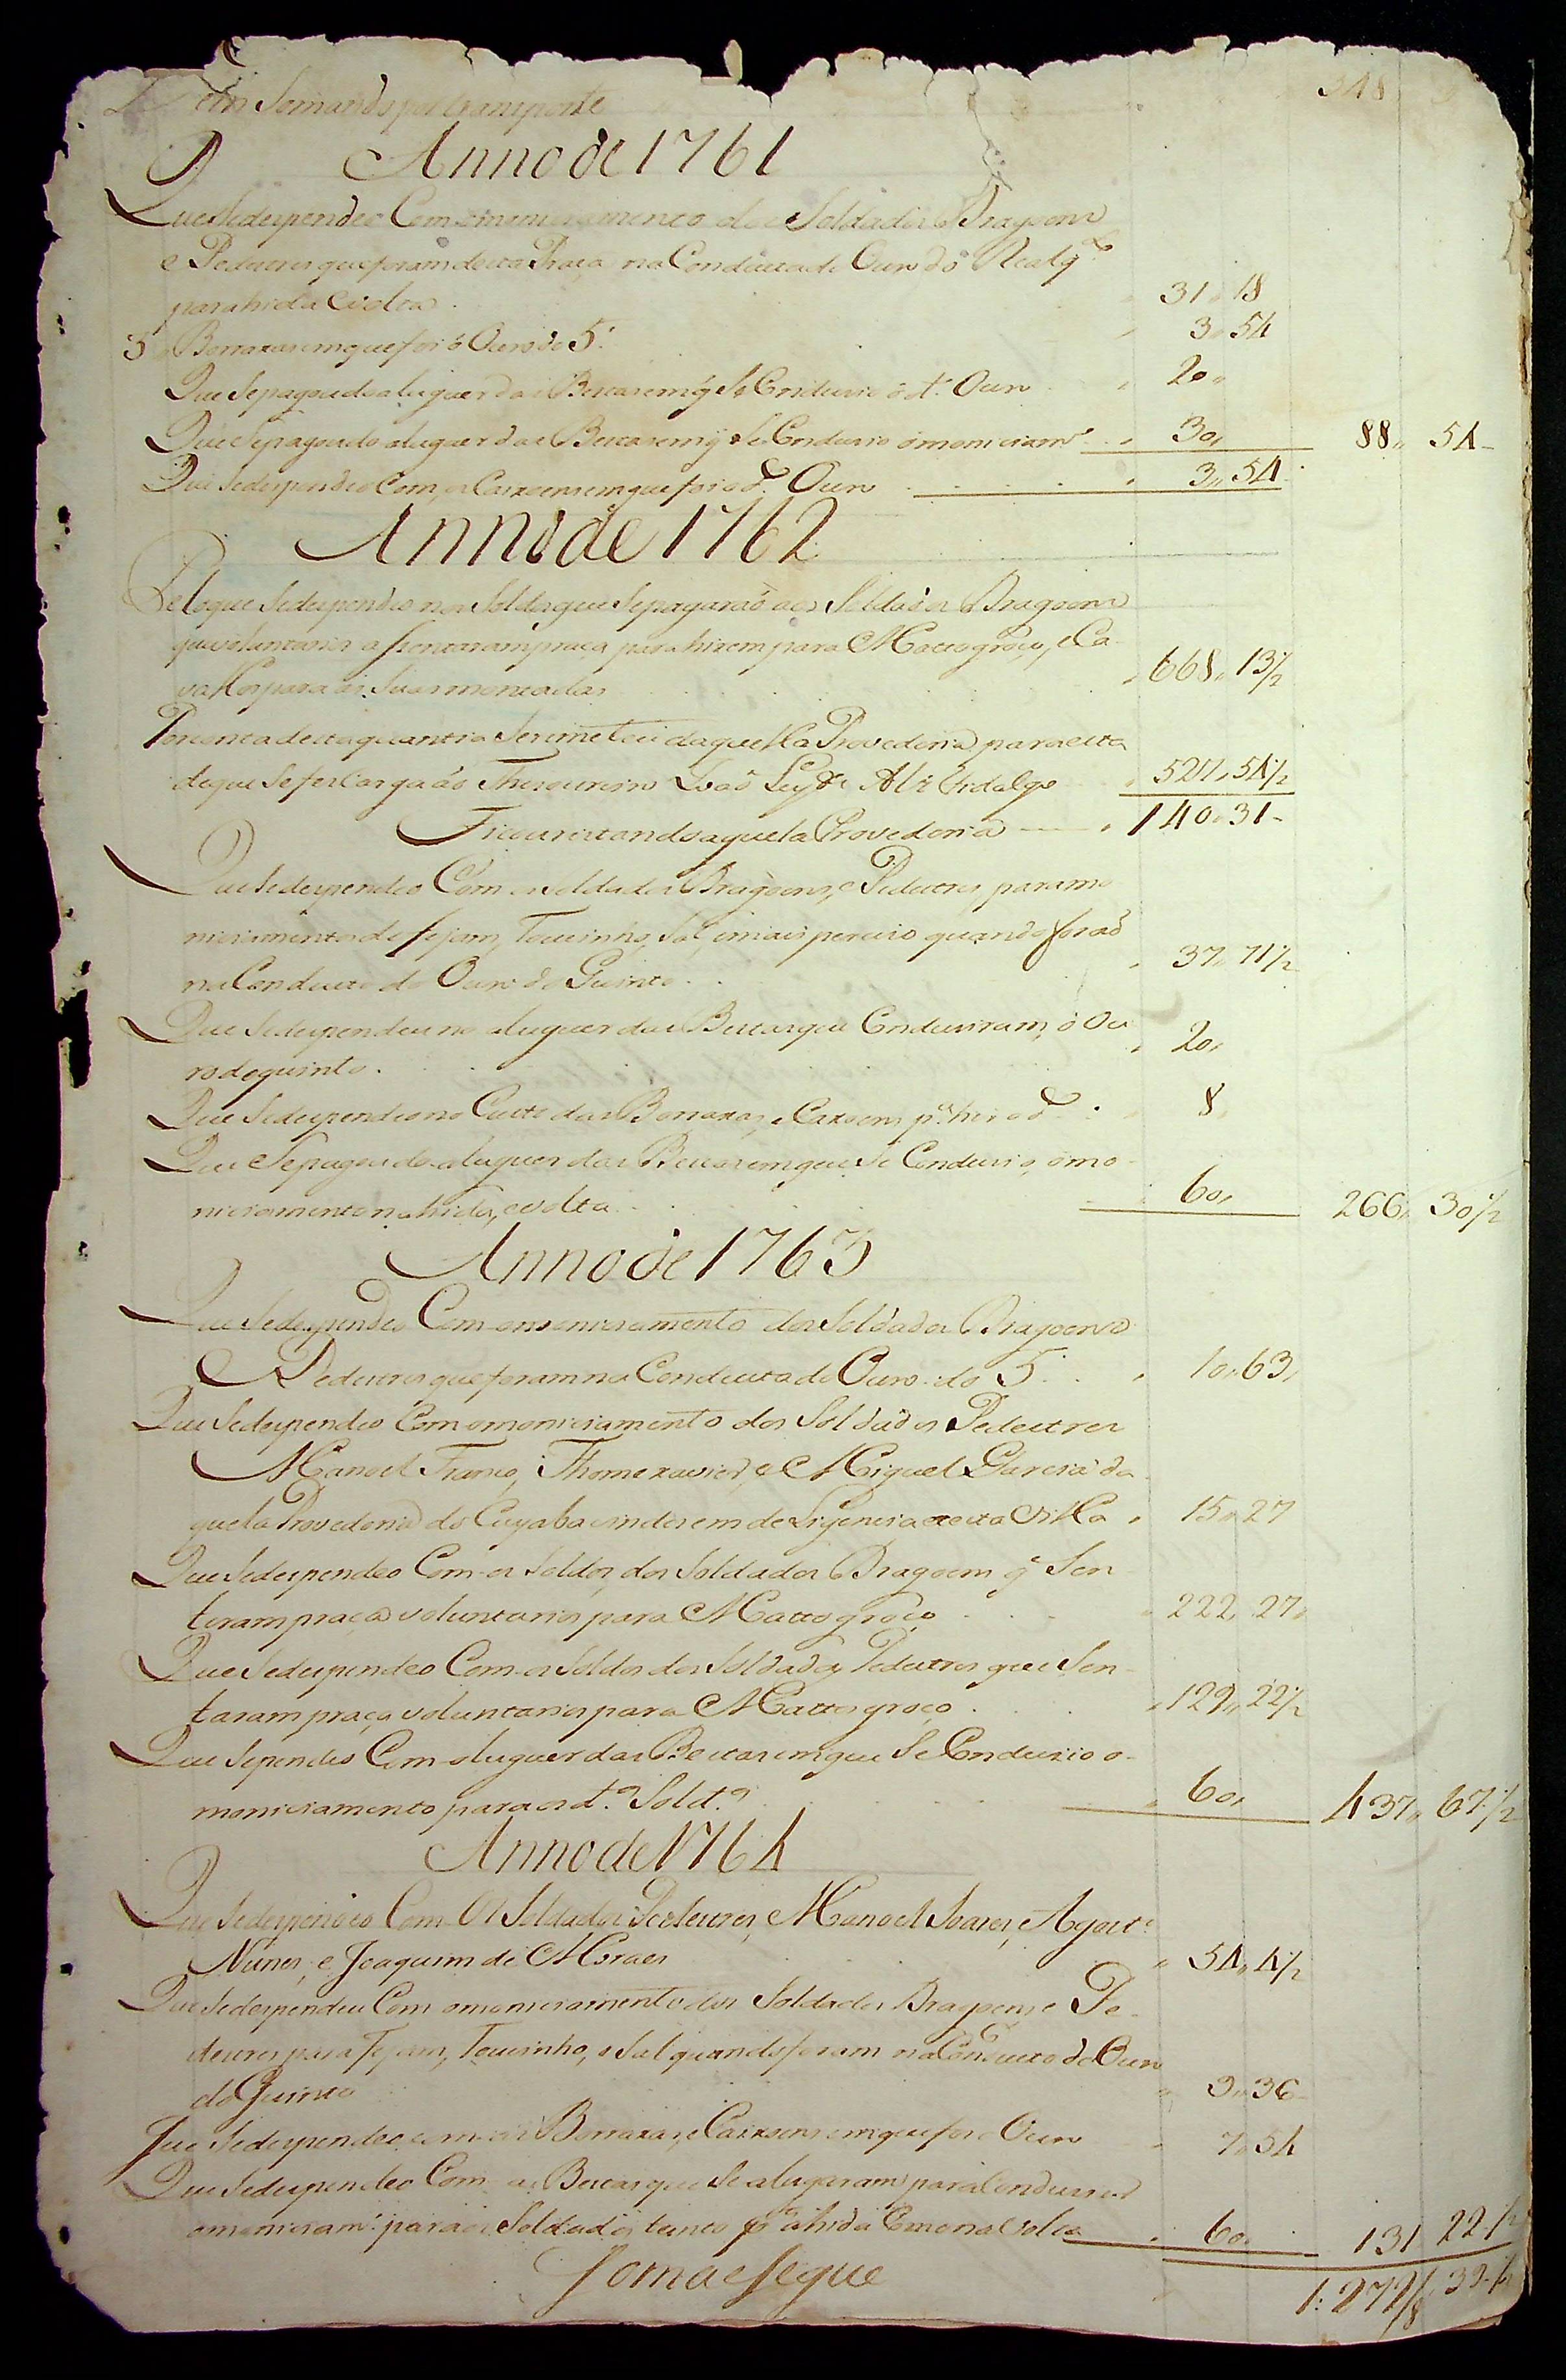 em Somando por transporte 348
Anno de 1761
Que Sedespendeo Com omoniciamento dos Soldados Dragoens
e Pedestres que foram desta Praça na Conducta do Ouro do Real q.to
para hida e volta . 31,, 18
5 Borrazas em que foi o Ouro do 5.º 3,, 54
Que Sepagou do aluguer das Bestas em q̃ Se Conduzio o d.º Ouro 20,,
Que Sepagou do aluguer das Bestas em q̃ Se Conduzio omoniciam.to 30,, 88,, 54
Que Sedespendeo Com os Caixoens em que foi o d.º Ouro 3,, 54
Anno de 1762
Pelo que Sedespendeo nos Soldos que Sepagaraõ aos Soldados Dragoens
que voluntarios asentaram praça para hirem para Mattogroço, e Ca-
vallos para as Suas montadas 668,, 13½
Por conta desta quantia Seremeteu daquella Provedoria para esta
de que Se fes Carga ao Thezoureiro Joaõ Leyte Alz Fidalgo 527,, 54½
Ficou restando aquela Provedoria 140,, 31
Que Sedespendeo Com os Soldados Dragoens, e Pedestres para mo
niciamento de fejam, Toucinho, Sal, e mais perciso quando foraõ
na Conducta do Ouro do Quinto . . 37,, 71½
Que Sedespendeu no aluguer das Bestas que Conduziram, o Ou
ro do quinto . 20,,
Que Sedespendeo no Custo das Borrazas, e Caxoens p.ª hir o d.º 8,,
Que Sepagou do aluguer das Bestas em que Se Conduzio, omo-
niciamento na hida, e volta . . 60,, 266,, 30½
Anno de 1763
Que Sedespendeo Com omoniciamento dos Soldados Dragoens
e Pedestres que foram na Conducta do Ouro do 5.º 10,, 63,,
Que Sedespendeo Com omoniciamento dos Soldados Pedestres
Manoel Franco, Thome xavier, e Miguel Garcia da
quela Provedoria do Cuyaba vindos em deligencia a esta Villa 15,, 27
Que Sedespendeo Com os Soldos, dos Soldados Dragoens q̃ Sen
taram praça voluntarios para Mattogroço 222,, 27,,
Que Sedespendeo Com os Soldos dos Soldados Pedestres que Sen-
taram praça voluntarios para Mattogroço . 129,, 22½
Que Sependeo Com aluguer das Bestas em que Se Conduzio o-
moniciamento para os d.os Sold.os 60,, 437,, 67½
Anno de 1764
Que Sedespendeo Com Os Soldados Pedestres, Manoel Soares, Agost.º
Nunes, e Joaquim de Moraes 54,, 4½
Que Sedespendeu Com omoniciamento dos Soldados Dragoens, e Pe-
destres para Fejam, Toucinho, e Sal quando foram na Conducta do Ouro
do Quinto 9,, 36
Que Sedespendeo com as Borrazas, e Caixoens em que foi o Ouro 7,, 54
Que Sedespendeo Com as Bestas que Se alugaram para Conduzir
omoniciam.to para os Soldados tanto p.ª ahida Como na volta 60,, 131 22½
Soma e Segue 1:272/8 32½